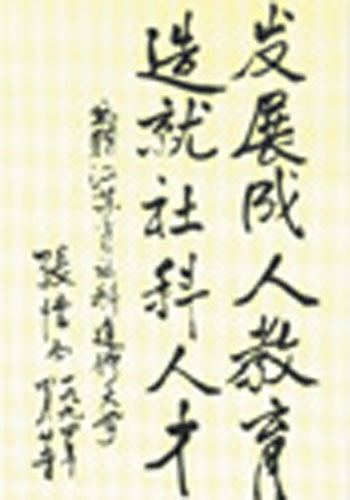 发展成人教育
造就社科人才
江苏省社科进修大学
一九九四年